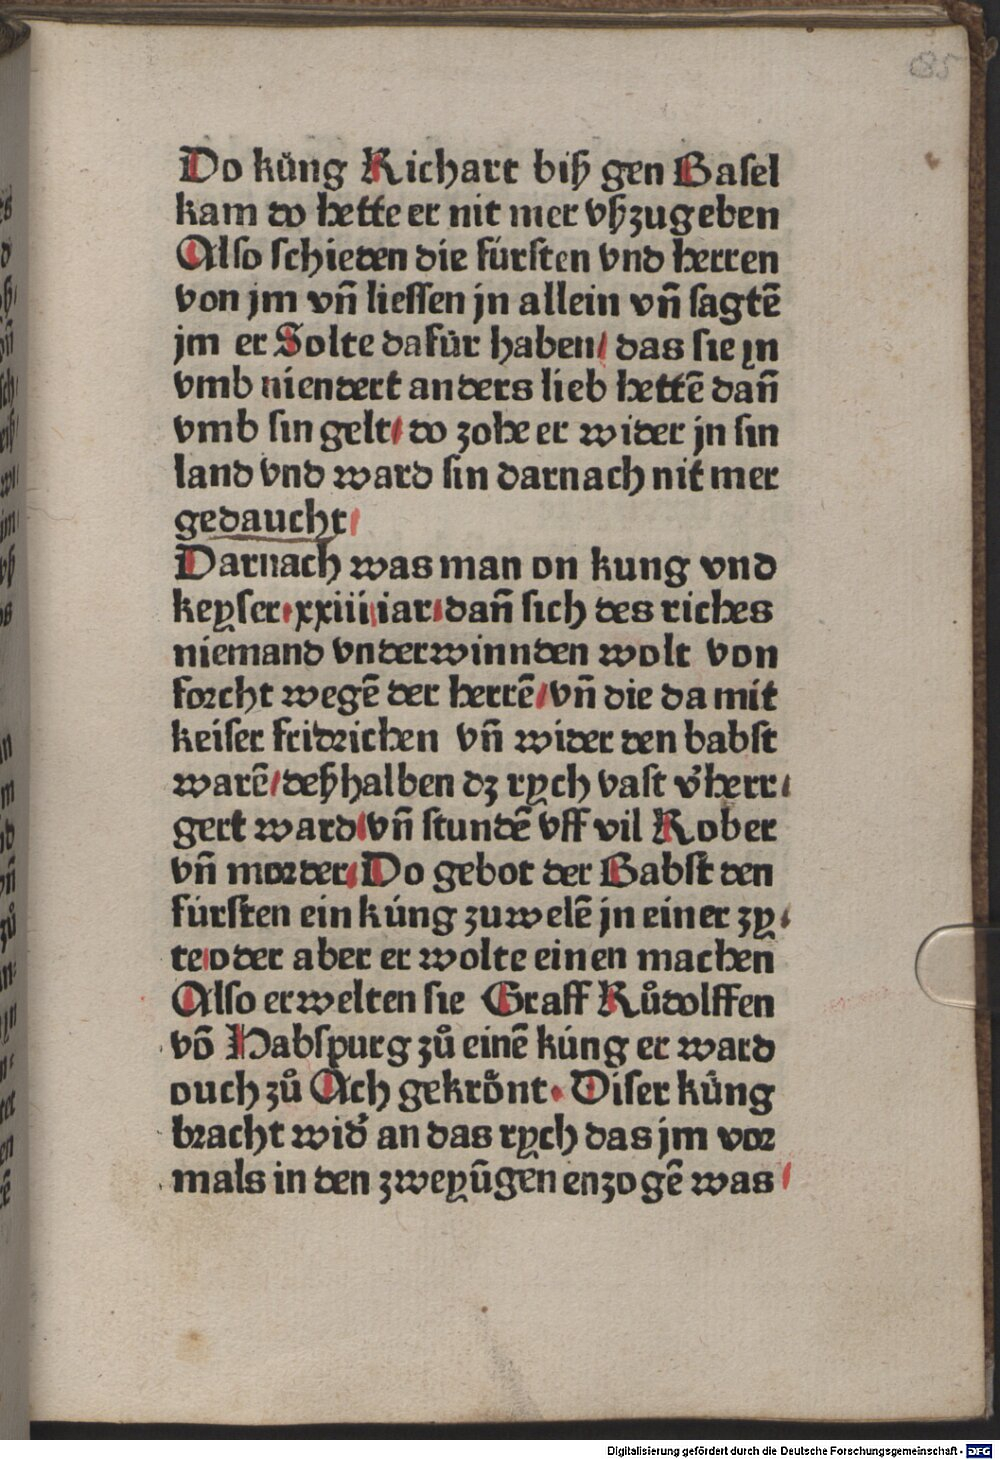 85
Do kůng Richart biß gen Basel
kam do hette er nit mer vßzugeben
Also schieden die fúrsten vnd herren
von jm vñ liessen jn allein vñ sagtē
jm er Solte dafúr haben/ das sie jn
vmb niendert anders lieb hettē dañ
vmb sin gelt/ do zohe er wider jn sin
land vnd ward sin darnach nit mer
gedaucht/
Darnach was man on kung vnd
keyser·xxiii iar/dañ sich des riches
niemand vnderwinnden wolt von
forcht wegē der herrē/vñ die da mit
keiser fridrichen vñ wider den babst
warē/deßhalben dz rych vast v'herr⸗
gert ward/vñ stundē vff vil Rober
vñ morder/Do gebot der Babst den
fúrsten ein kúng zuwelē jn einer zy⸗
te/oder aber er wolte einen machen
Also erwelten sie Graff Růdolffen
vō Habspurg zů einē kúng er ward
ouch zů Ach gekrönt· Diser kůng
bracht wid' an das rych das jm vor
mals in den zweyūgen enzogē was/
Digitalisierung gefördert durch die Deutsche Forschungsgemeinschaft - DFG